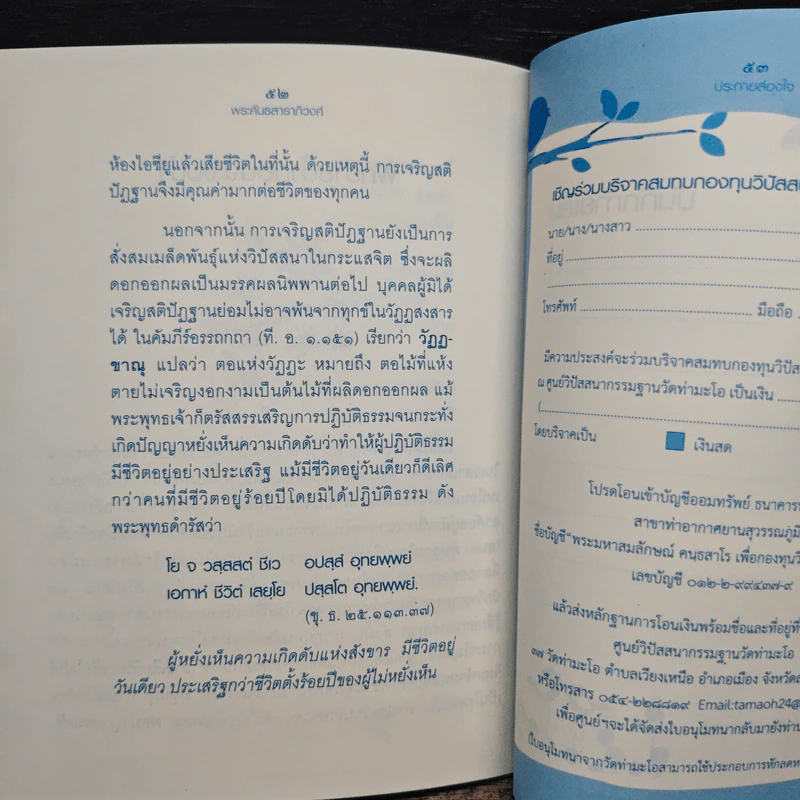 ๕๒
พระคันธสาราภิวงศ์
ห้องไอซียูแล้วเสียชีวิตในที่นั้น ด้วยเหตุนี้ การเจริญสติ
ปัฏฐานจึงมีคุณค่ามากต่อชีวิตของทุกคน
นอกจากนั้น การเจริญสติปัฏฐานยังเป็นการ
สั่งสมเมล็ดพันธุ์แห่งวิปัสสนาในกระแสจิต ซึ่งจะผลิ
ดอกออกผลเป็นมรรคผลนิพพานต่อไป บุคคลผู้มิได้
เจริญสติปัฏฐานย่อมไม่อาจพ้นจากทุกข์ในวัฏฏสงสาร
ได้ ในคัมภีร์อรรถกถา (ที. อ. ๑.๑๕๑) เรียกว่า วัฏฏ-
ขาณุ แปลว่า ตอแห่งวัฏฏะ หมายถึง ตอไม้ที่แห้ง
ตายไม่เจริญงอกงามเป็นต้นไม้ที่ผลิดอกออกผล แม้
พระพุทธเจ้าก็ตรัสสรรเสริญการปฏิบัติธรรมจนกระทั่ง
เกิดปัญญาหยั่งเห็นความเกิดดับว่าทำให้ผู้ปฏิบัติธรรม
มีชีวิตอยู่อย่างประเสริฐ แม้มีชีวิตอยู่วันเดียวก็ดีเลิศ
กว่าคนที่มีชีวิตอยู่ร้อยปีโดยมิได้ปฏิบัติธรรม ดัง
พระพุทธดำรัสว่า
โย จ วสฺสสตํ ชีเว อปสฺสํ อุทยพฺพยํ
เอกาหํ ชีวิตํ เสยฺโย ปสฺสโต อุทยพฺพยํ.
(ขุ. ธ. ๒๕.๑๑๓.๓๗)
ผู้หยั่งเห็นความเกิดดับแห่งสังขาร มีชีวิตอยู่
วันเดียว ประเสริฐกว่าชีวิตตั้งร้อยปีของผู้ไม่หยั่งเห็น
๕๓
ประกายส่องใจ
เชิญร่วมบริจาคสมทบกองทุนวิปัสส
นาย/นาง/นางสาว
ที่อยู่
โทรศัพท์ มือถือ
มีความประสงค์จะร่วมบริจาคสมทบกองทุนวิปัส
ณ ศูนย์วิปัสสนากรรมฐานวัดท่ามะโอ เป็นเงิน
(
โดยบริจาคเป็น เงินสด
โปรดโอนเข้าบัญชีออมทรัพย์ ธนาคาร
สาขาท่าอากาศยานสุวรรณภูมิ
ชื่อบัญชี "พระมหาสมลักษณ์ คนฺธสาโร เพื่อกองทุนวิ
เลขบัญชี ๐๑๒-๒-๙๙๔๓๗-๙
แล้วส่งหลักฐานการโอนเงินพร้อมชื่อและที่อยู่ที่
ศูนย์วิปัสสนากรรมฐานวัดท่ามะโอ
๓๗ วัดท่ามะโอ ตำบลเวียงเหนือ อำเภอเมือง จังหวัดล
หรือโทรสาร ๐๕๔-๒๒๘๘๑๙ Email:tamaoh24@
เพื่อศูนย์ฯจะได้จัดส่งใบอนุโมทนากลับมายังท่าน
(ใบอนุโมทนาจากวัดท่ามะโอสามารถใช้ประกอบการหักลดห